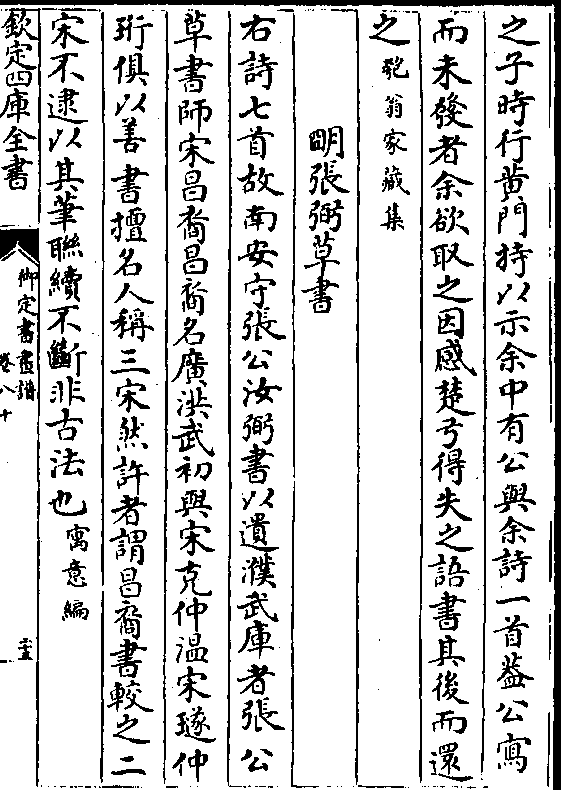 之子時行黄門持以示余中有公與余詩一首葢公寫
而未發者余欲取之因感楚弓得失之語書其後而還
之匏翁家藏集
明張弼草書
右詩七首故南安守張公汝弼書以遺濮武庫者張公
草書師宋昌裔昌裔名廣洪武初與宋克仲温宋璲仲
珩俱以善書擅名人稱三宋然許者謂昌裔書較之二
宋不逮以其筆聯續不斷非古法也寓意編
欽定四庫全書
御定書畫譜
卷八十
二十五